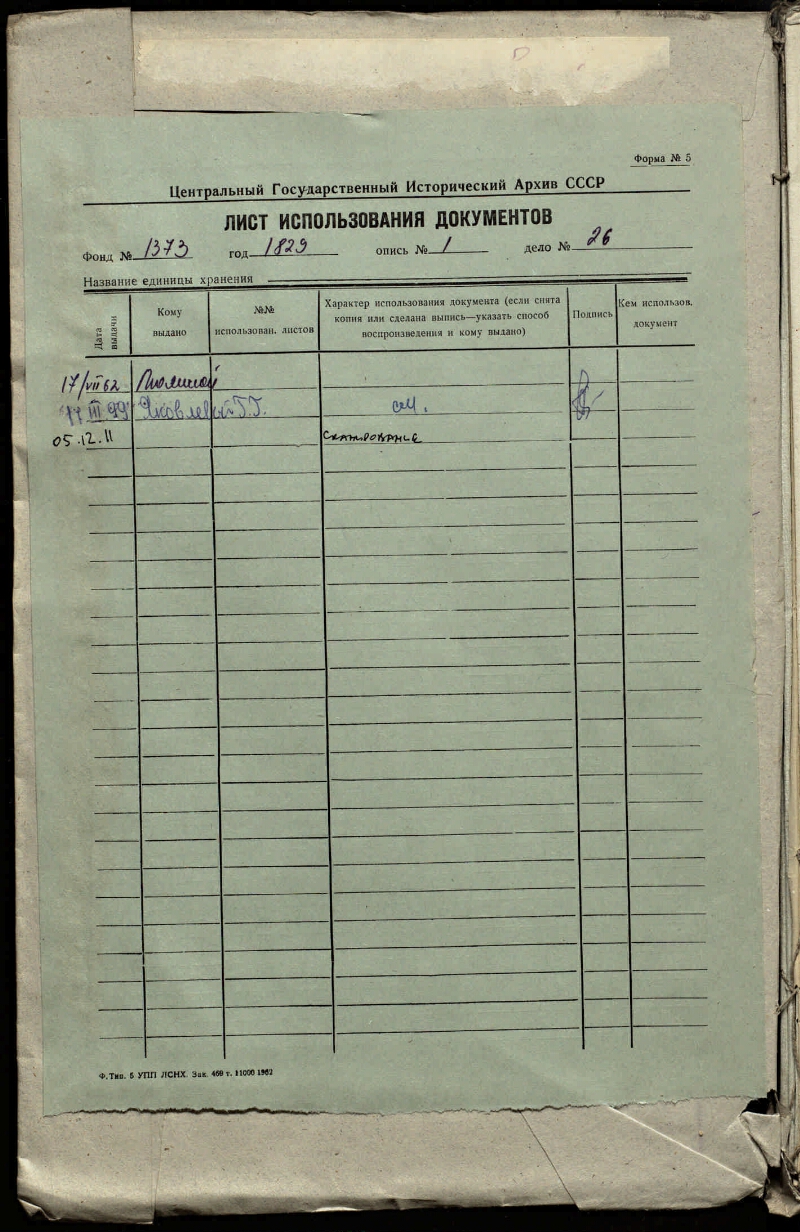 Форма № 5
Центральный Государственный Исторический Архив СССР
ЛИСТ ИСПОЛЬЗОВАНИЯ ДОКУМЕНТОВ
Фонд № 1373 год 1829 опись № 1 дело № 26
Название единицы хранения
Дата выдачи
Кому выдано
№№ использован. листов
Характер использования документа (если снята
копия или сделана выпись—указать способ
воспроизведения и кому выдано)
Подпись
Кем использов. документ
17/VII 62
III 99 Г.Г. см.
05.12.11 Сканирование
Ф. Тип. 5 УПП ЛСНХ. Зак. 469 т. 11000 1962